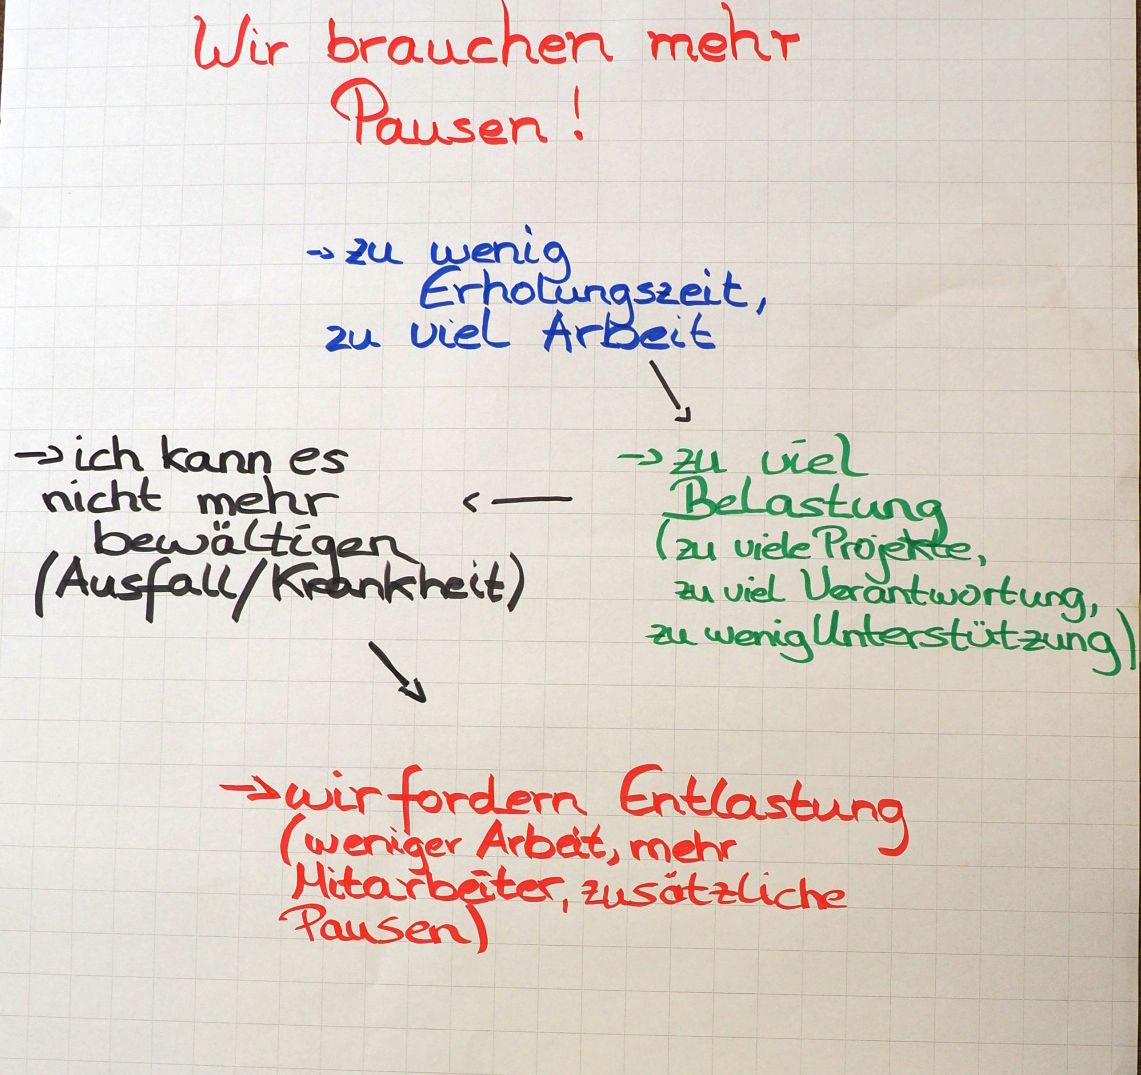 Wir brauchen mehr
Pausen!
→ zu wenig
Erholungszeit,
zu viel Arbeit
→ zu viel
Belastung
(zu viele Projekte,
zu viel Verantwortung,
zu wenig Unterstützung)
→ ich kann es
nicht mehr
bewältigen
(Ausfall/Krankheit)
→ wir fordern Entlastung
(weniger Arbeit, mehr
Mitarbeiter, zusätzliche
Pausen)